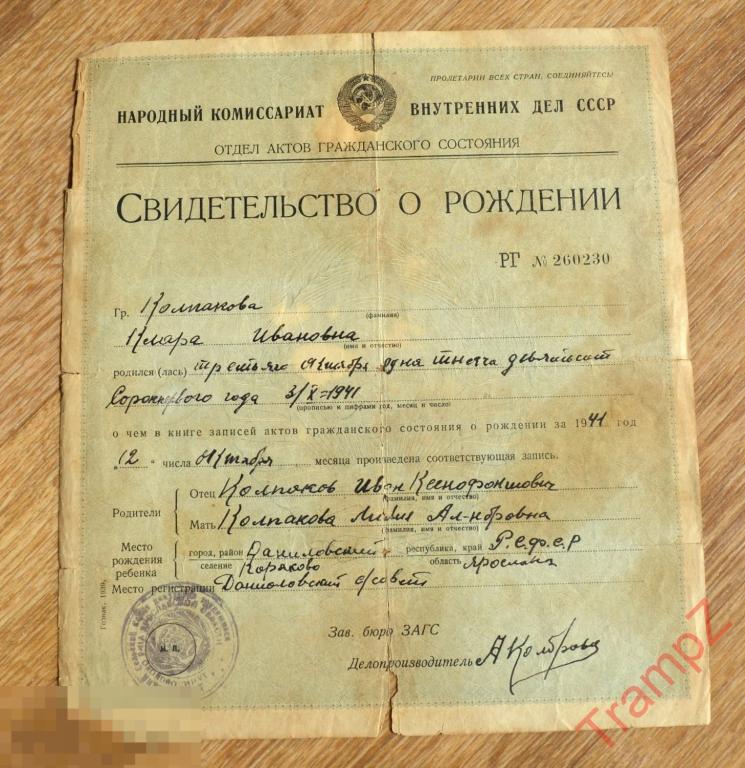 ПРОЛЕТАРИИ ВСЕХ СТРАН, СОЕДИНЯЙТЕСЬ!
НАРОДНЫЙ КОМИССАРИАТ ВНУТРЕННИХ ДЕЛ СССР
ОТДЕЛ АКТОВ ГРАЖДАНСКОГО СОСТОЯНИЯ
СВИДЕТЕЛЬСТВО О РОЖДЕНИИ
РГ № 260230
Гр. Колпакова
(фамилия)
Клара Ивановна
(имя и отчество)
родился (лась) третьяго октября одна тысеча девятьсот
Сорокпервого года 3/X-1941
(прописью и цифрами год, месяц и число)
о чем в книге записей актов гражданского состояния о рождении за 1941 год
„12" числа октября месяца произведена соответствующая запись.
Родители
Отец Колпаков Иван Ксенофонтович
(фамилия, имя и отчество)
Мать Колпакова Лидия Ал-ндровна
(фамилия, имя и отчество)
Место рождения ребенка
город, район Даниловский республика, край Р.С.Ф.С.Р
селение область Ярослав
Место регистрации Даниловский с/совет
Гознак. 1939.
М. П.
Зав. бюро ЗАГС
Делопроизводитель
TrampZ